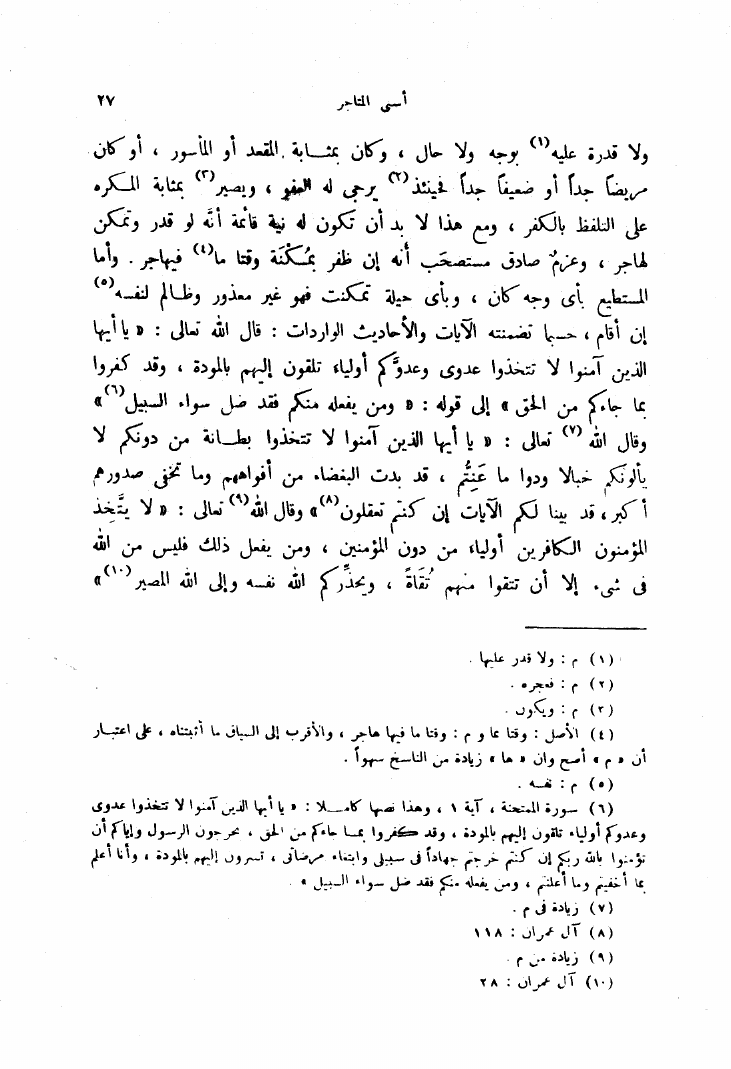 أسنى المتاجر ٢٧
ولا قدرة عليه(١) بوجه ولا حال ، وكان بمثابة المقعد أو المأسور ، أو كان
مريضاً جداً أو ضعيفاً جداً فحينئذ(٢) يرجى له العفو ، ويصير(٣) بمثابة المكره
على التلفظ بالكفر ، ومع هذا لا بد أن تكون له نية قائمة أنَّه لو قدر وتمكن
لهاجر ، وعزمٌ صادق مستصحَب أنه إن ظفر بمُكْنَة وقتا ما(٤) فيهاجر . وأما
المستطيع بأى وجه كان ، وبأى حيلة تمكنت فهو غير معذور وظالم لنفسه(٥)
إن أقام ، حسبما تضمنته الآيات والأحاديث الواردات : قال الله تعالى : « يا أيها
الذين آمنوا لا تتخذوا عدوى وعدوَّكم أولياء تلقون إليهم بالمودة ، وقد كفروا
بما جاءكم من الحق » إلى قوله : « ومن يفعله منكم فقد ضل سواء السبيل(٦) »
وقال الله (٧) تعالى : « يا أيها الذين آمنوا لا تتخذوا بطانة من دونكم لا
يألونكم خبالا ودوا ما عَنِتُّم ، قد بدت البغضاء من أفواههم وما تخفى صدورهم
أكبر ، قد بينا لكم الآيات إن كنتم تعقلون(٨) » وقال الله(٩) تعالى : « لا يتَّخِذ
المؤمنون الكافرين أولياء من دون المؤمنين ، ومن يفعل ذلك فليس من الله
فى شىء إلا أن تتقوا منهم تُقَاةً ، ويحذِّركم الله نفسه وإلى الله المصير(١٠) »
(١) م : ولا قدر عليها .
(٢) م : فعجره .
(٣) م : ويكون .
(٤) الأصل : وقتا بما و م : وقتا ما فيها هاجر ، والأقرب إلى السياق ما أثبتناه ، على اعتبار
أن « م » أصح وان « ها » زيادة من الناسخ سهواً .
(٥) م : نفسه .
(٦) سورة الممتحنة ، آية ١ ، وهذا نصها كاملا : « يا أيها الذين آمنوا لا تتخذوا عدوى
وعدوكم أولياء تلقون إليهم بالمودة ، وقد كفروا بما جاءكم من الحق ، يخرجون الرسول وإياكم أن
تؤمنوا بالله ربكم إن كنتم خرجتم جهاداً فى سبيلى وابتغاء مرضاتى ، تسرون إليهم بالمودة ، وأنا أعلم
بما أخفيتم وما أعلنتم ، ومن يفعله منكم فقد ضل سواء السبيل » .
(٧) زيادة فى م .
(٨) آل عمران : ١١٨
(٩) زيادة من م .
(١٠) آل عمران : ٢٨